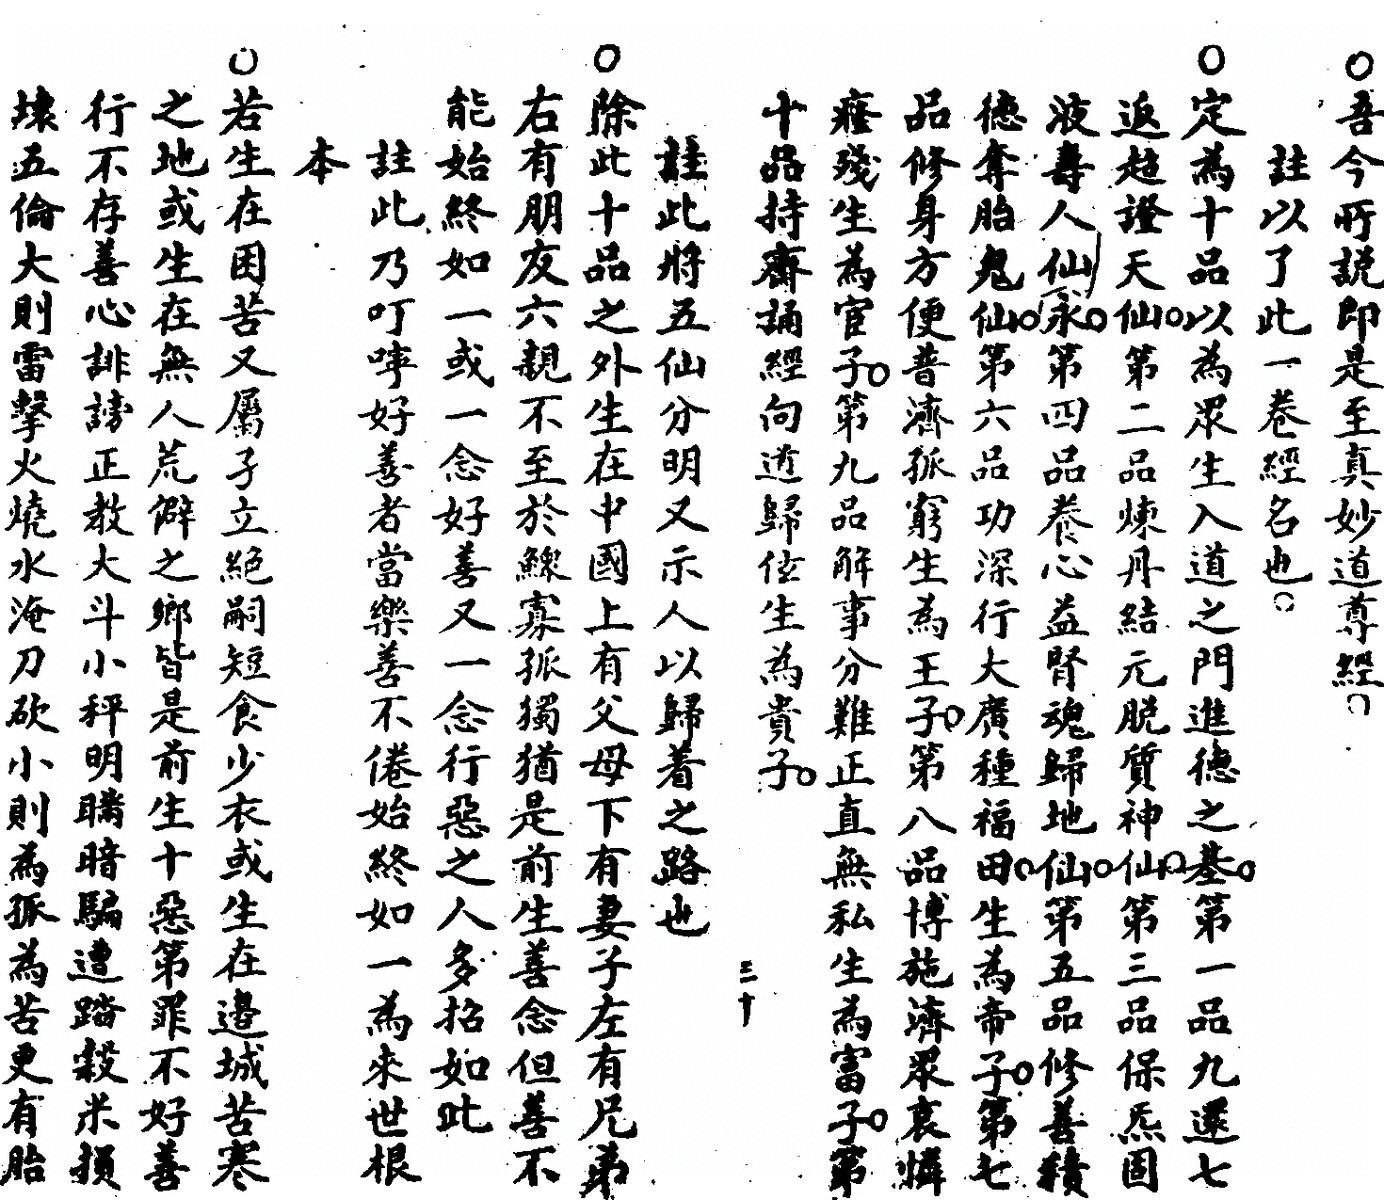 ○吾今所説即是至真妙道尊經○
註以了此一卷經名也○
○定為十品以為眾生入道之門進德之基○第一品九還七
返超證天仙○第二品煉丹結元脱質神仙○第三品保炁固
液壽人仙永○第四品養心益腎魂歸地仙○第五品修善積
德奪胎鬼仙○第六品功深行大廣種福田○生為帝子○第七
品修身方便普濟孤窮生為王子○第八品博施濟眾哀憐
癃殘生為官子○第九品解事分難正直無私生為富子○第
十品持齋誦經向道歸依生為貴子○
三十
註此將五仙分明又示人以歸着之路也
○除此十品之外生在中國上有父母下有妻子左有兄弟
右有朋友六親不至於鰥寡孤獨猶是前生善念但善不
能始終如一或一念好善又一念行惡之人多招如此
註此乃叮嚀好善者當樂善不倦始終如一為來世根
本
○若生在困苦又屬孑立絕嗣短食少衣或生在邊城苦寒
之地或生在無人荒僻之鄉皆是前生十惡第罪不好善
行不存善心誹謗正教大斗小秤明瞞暗騙遭踏穀米損
壞五倫大則雷擊火燒水淹刀砍小則為孤為苦更有胎